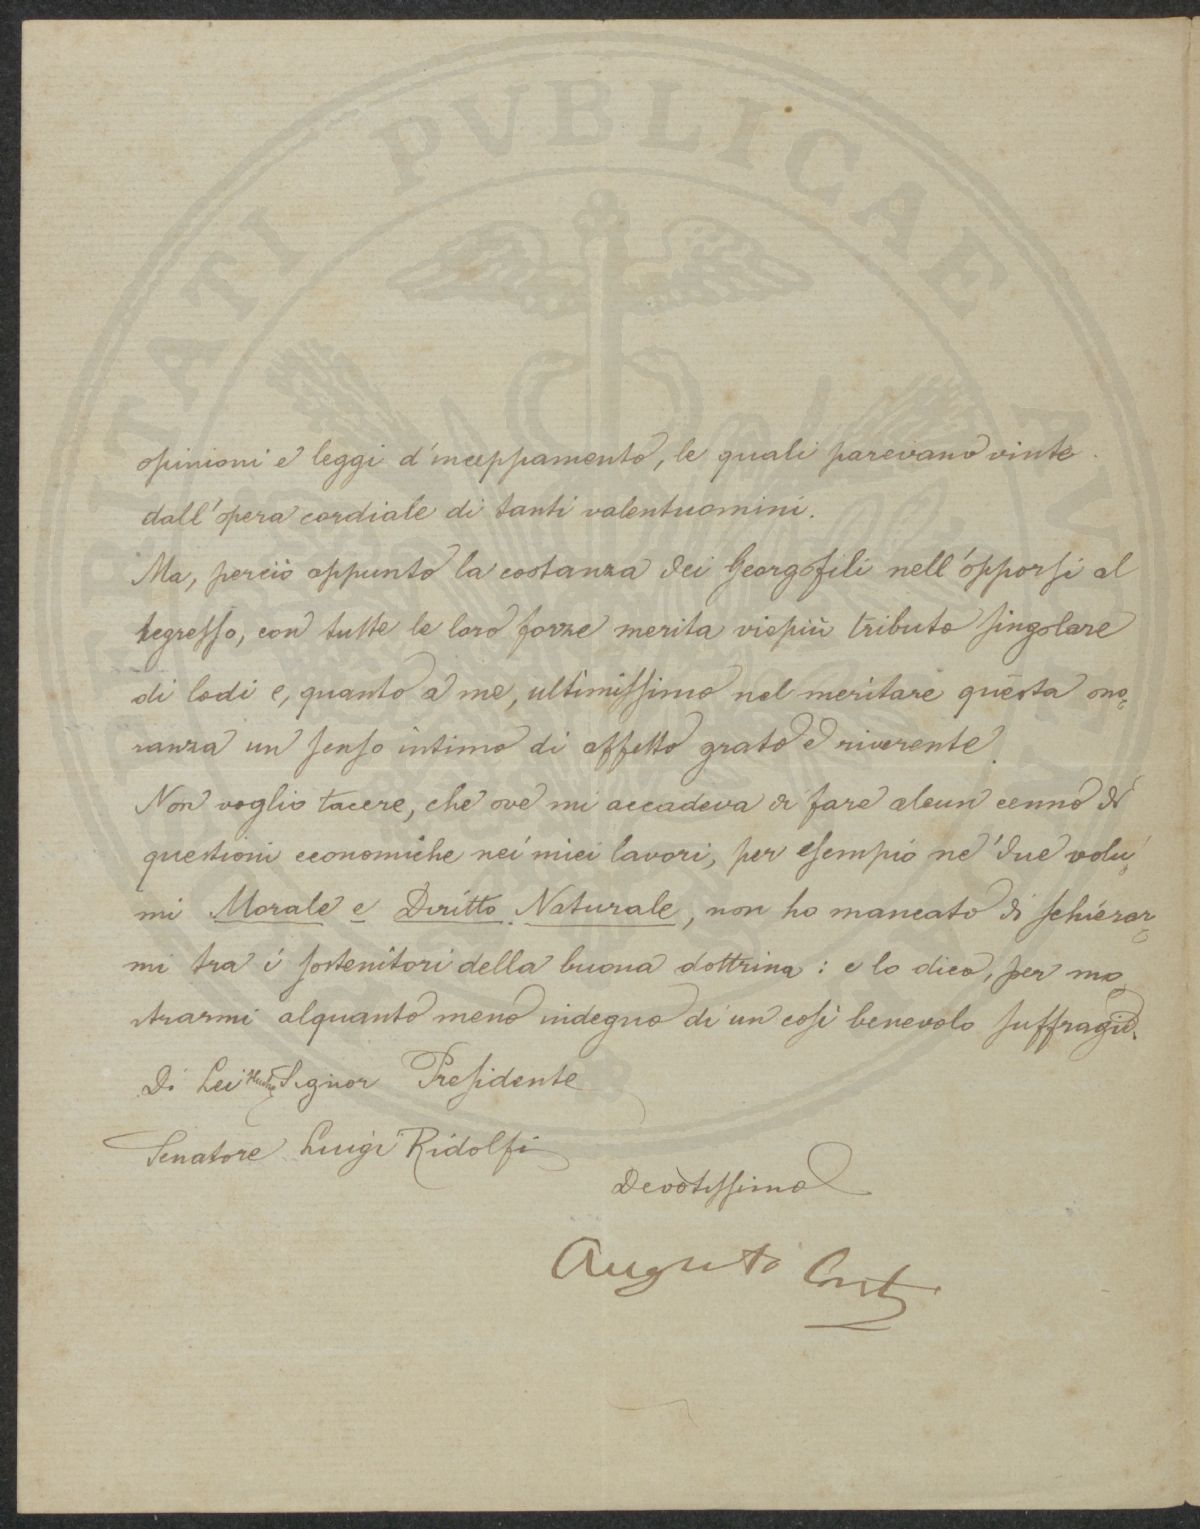 PVBLICAE
opinioni e leggi d'inceppamento, le quali parevano vinte
dall'opera cordiale di tanti valentuomini.
Ma, perciò appunto la costanza dei Georgofili nell'opporsi al
regresso, con tutte le loro forze merita viepiù tributo singolare
di lodi e, quanto a me, ultimissimo nel meritare questa ono-
ranza un senso intimo di affetto grato e riverente.
Non voglio tacere, che ove mi accadeva di fare alcun cenno di
questioni economiche nei miei lavori, per esempio ne' due volu-
mi Morale e Diritto Naturale, non ho mancato di schierar-
mi tra i sostenitori della buona dottrina: e lo dico, per mo-
strarmi alquanto meno indegno di un così benevolo suffragio.
Di Lei Signor Presidente
Senatore Luigi Ridolfi
Devotissimo
Augusto Conti